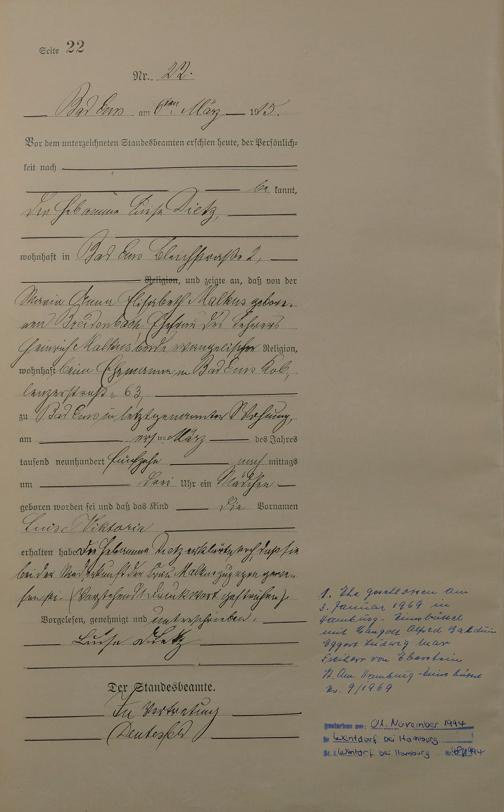 Seite 22
Nr. 22.
Bad Ems am 6ten März 1915.
Vor dem unterzeichneten Standesbeamten erschien heute, der Persönlich-
keit nach
be kannt,
die Hebamme Luise Dietz,
wohnhaft in Bad Ems Bleichstraße 2,
Religion, und zeigte an, daß von der
Maria Anna Elisabeth Malkus gebore-
nen Breidenbach Ehefrau des Lehrers
Heinrich Malkus beide evangelischer Religion,
wohnhaft beim Ehemanne in Bad Ems Kob-
lenzerstraße 63,
zu Bad Ems in letztgenannter Wohnung,
am ersten März des Jahres
tausend neunhundert fünfzehn nach mittags
um drei Uhr ein Mädchen
geboren worden sei und daß das Kind die Vornamen
Luise Viktoria
erhalten habe. Die Hebamme Dietz erklärte noch, daß sie
bei der Niederkunft der Frau Malkus zugegen gewe-
sen sei. (Vorstehend 1 Druckwort gestrichen)
Vorgelesen, genehmigt und unterschrieben.
Luise Dietz
Der Standesbeamte.
In Vertretung
1. Ehe geschlossen am
3. Januar 1969 in
Hamburg-
mit Alfred
Eggert Ludwig
Freiherr von Eberstein
St.Amt Hamburg-
Nr. 9/1969
gestorben am: 01. November 1994
in Wentorf bei Hamburg
Wentorf bei Hamburg